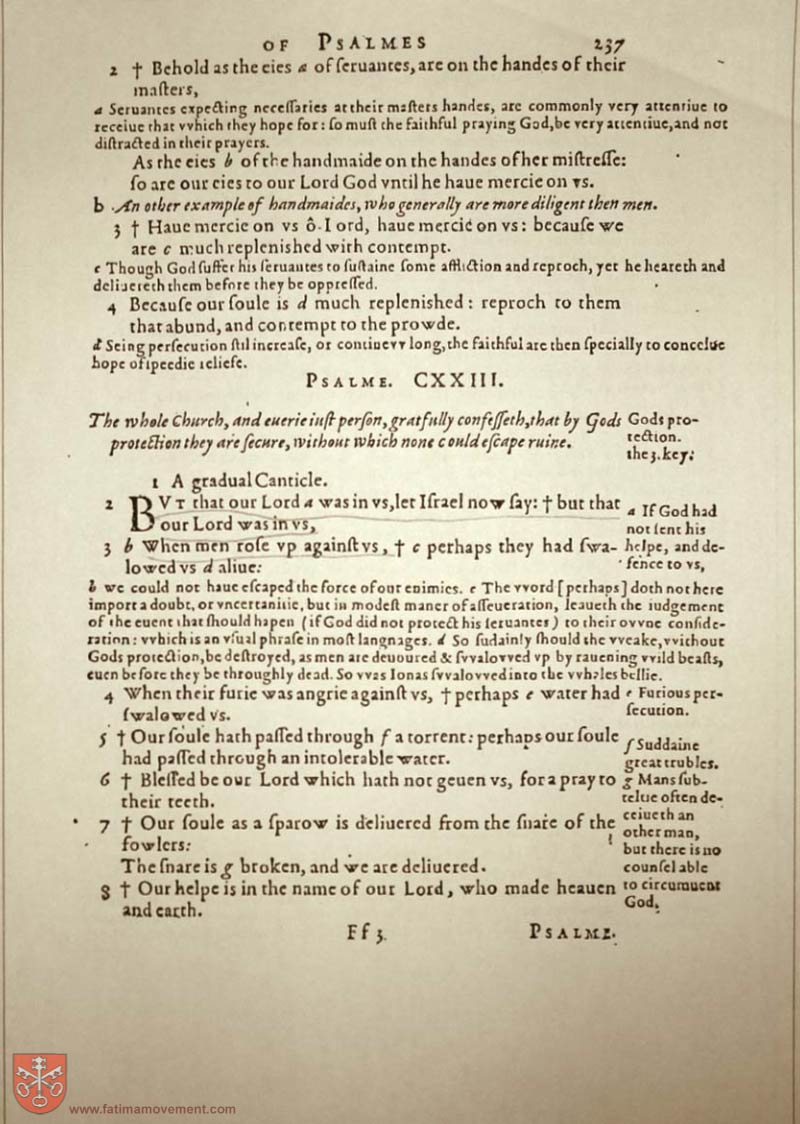 OF PSALMES 237
2 † Behold as the eies a of ſeruantes, are on the handes of their
maſters,
a Seruantes expecting neceſſaries at their maſters handes, are commonly very attentiue to
receiue that vvhich they hope for: ſo muſt the faithful praying God, be very attentiue, and not
diſtracted in their prayers.
As the eies b of the handmaide on the handes of her miſtreſſe:
ſo are our eies to our Lord God vntil he haue mercie on vs.
b An other example of handmaides, who generally are more diligent then men.
3 † Haue mercie on vs ô Lord, haue mercie on vs: becauſe we
are c much repleniſhed with contempt.
c Though God ſuffer his ſeruantes to ſuſtaine ſome affliction and reproch, yet he heareth and
deliuereth them before they be oppreſſed.
4 Becauſe our ſoule is d much repleniſhed: reproch to them
that abund, and contempt to the prowde.
d Seing perſecution ſtil increaſe, or continevv long, the faithful are then ſpecially to conceiue
hope of ſpeedie reliefe.
PSALME. CXXIII.
The whole Church, and euerie iuſt perſon, gratfully confeſſeth, that by Gods
protection they are ſecure, without which none could eſcape ruine.
Gods pro-
tection.
the 3. key:
1 A gradual Canticle.
2 BVT that our Lord a was in vs, let Iſrael now ſay: † but that
our Lord was in vs,
3 b When men roſe vp againſt vs, † c perhaps they had ſwa-
lowed vs d aliue:
a If God had
not ſent his
helpe, and de-
fence to vs,
b we could not haue eſcaped the force of our enimies. c The vvord [perhaps] doth not here
import a doubt, or vncertanitie, but in modeſt maner of aſſeueration, leaueth the iudgement
of the euent that ſhould hapen (if God did not protect his ſeruantes) to their ovvne conſide-
ration: vvhich is an vſual phraſe in moſt langnages. d So ſudainly ſhould the vveake, vvithout
Gods protection, be deſtroyed, as men are deuoured & ſvvalovved vp by rauening vvild beaſts,
euen before they be throughly dead. So vvas Ionas ſvvalovved into the vvhales bellie.
4 When their furie was angrie againſt vs, † perhaps e water had
ſwalowed vs.
e Furious per-
ſecution.
5 † Our ſoule hath paſſed through f a torrent: perhaps our ſoule
had paſſed through an intolerable water.
6 † Bleſſed be our Lord which hath not geuen vs, for a pray to
their teeth.
7 † Our ſoule as a ſparow is deliuered from the ſnare of the
fowlers:
The ſnare is g broken, and we are deliuered.
8 † Our helpe is in the name of our Lord, who made heauen
and earth.
f Suddaine
great trubles.
g Mans ſub-
teltie often de-
ceiueth an
other man,
but there is no
counſel able
to circumuent
God.
Ff 3. PSALME.
www.fatimamovement.com